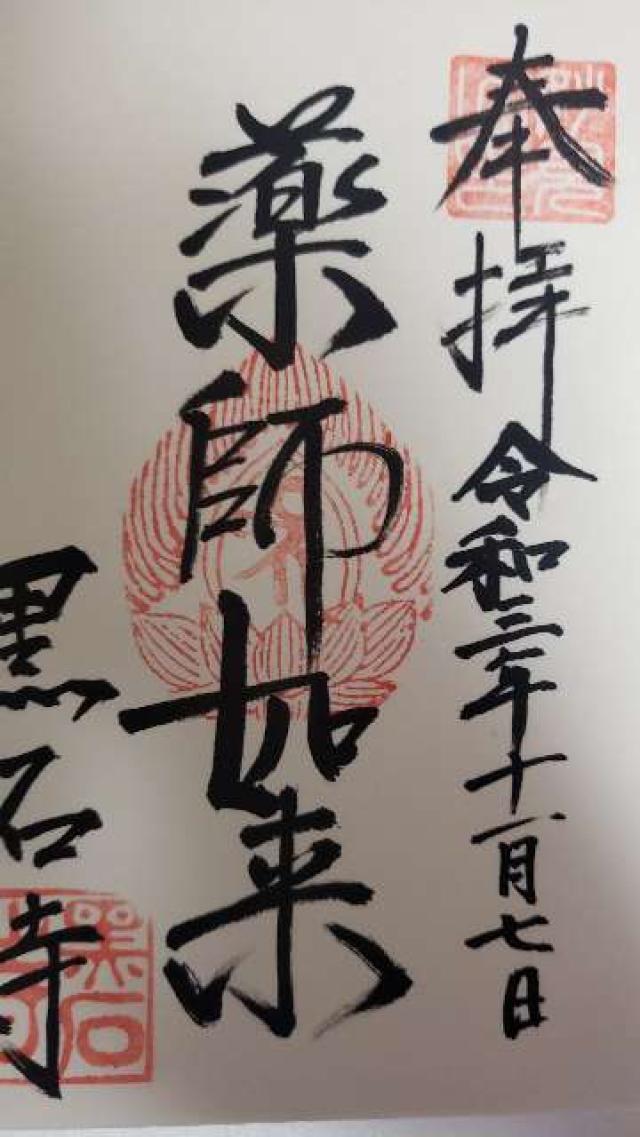 奉拝 令和三年十一月七日
薬師如来
黒石寺